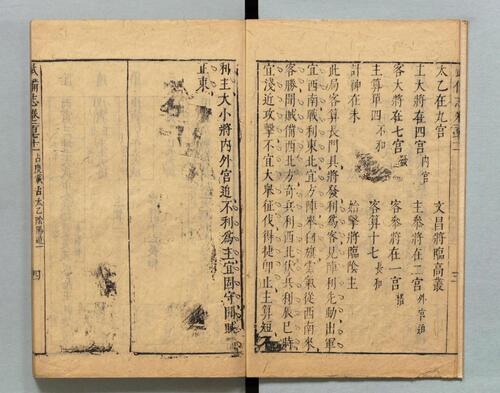 太乙在九宮 文昌將臨高叢
主大將在四宮內宮 主參將在二宮外宮迫
客大將在七宮 客參將在一宮
主算單四不和 客算十七長和
計神在未 始擊將臨陰主
此局客算長門具將發利為客見陣利先動出軍
宜西南戰利東北宜方陣來白旗雲氣從西南來
客勝聞賊備西北方奇兵利西北伏兵利辰巳時
宜淺近攻擊不宜大眾征伐得捷即止主算短
利主大小將內外宮迫不利為主宜固守聞賊
止東
武備志卷 占度載 占太乙陰陽遁一 四